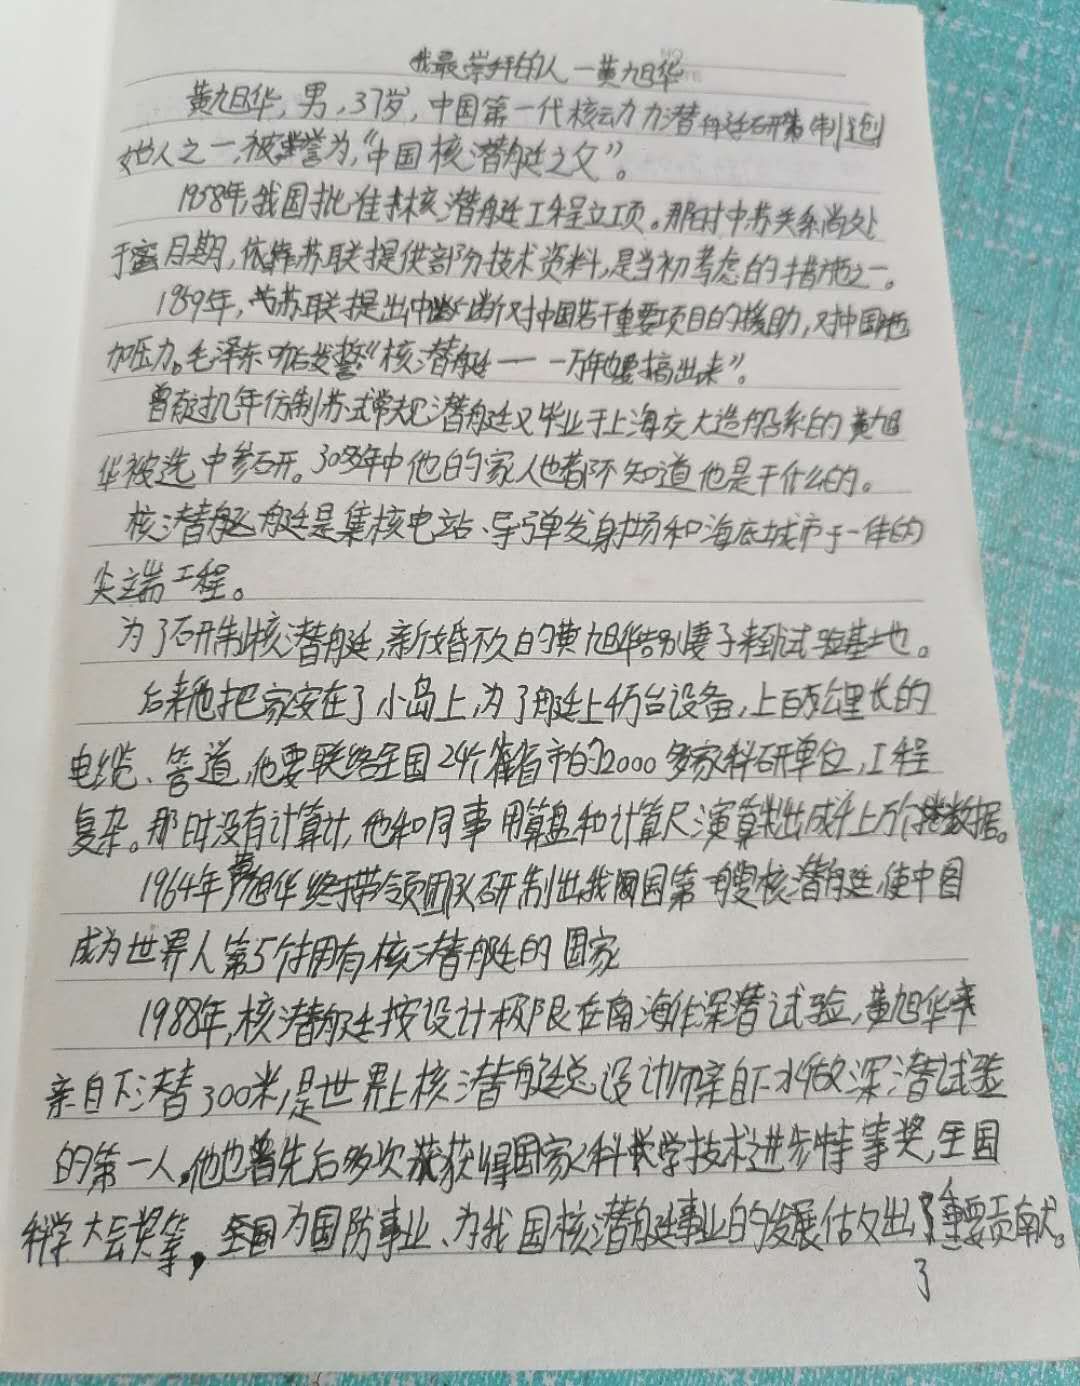 我最崇拜的人一黄旭华
黄旭华,男,37岁,中国第一代核动力潜艇研制创
始人之一,被誉为,“中国核潜艇之父”。
1958年,我国批准核潜艇工程立项。那时中苏关系尚处
于蜜月期,依靠苏联提供部分技术资料,是当初考虑的措施之一。
1959年,苏联提出中断对中国若干重要项目的援助,对中国施
加压力。毛泽东发誓“核潜艇一一一万年也要搞出来”。
曾有过几年仿制苏式常规潜艇又毕业于上海交大造船系的黄旭
华被选中参研。30多年中他的家人也都不知道他是干什么的。
核潜艇是集核电站、导弹发射场和海底城市于一体的
尖端工程。
为了研制核潜艇,新婚不久的黄旭华告别妻子来到试验基地。
后来他把家安在了小岛上,为了艇上万台设备,上百万公里长的
电缆、管道,他要联络全国24个省市的2000多家科研单位,工程
复杂。那时没有计算计,他和同事用算盘和计算尺演算出成千上万个数据。
1964年黄旭华终带领团队研制出我国第一艘核潜艇,使中国
成为世界人第5个拥有核潜艇的国家
1988年,核潜艇按设计极限在南海作深潜试验,黄旭华
亲自下潜300米,是世界上核潜艇总设计师亲自下水做深潜试验
的第一人,他也曾先后多次获得国家科学技术进步特等奖,全国
科学大会奖等,为国防事业、为我国核潜艇事业的发展做出了重要贡献。
了